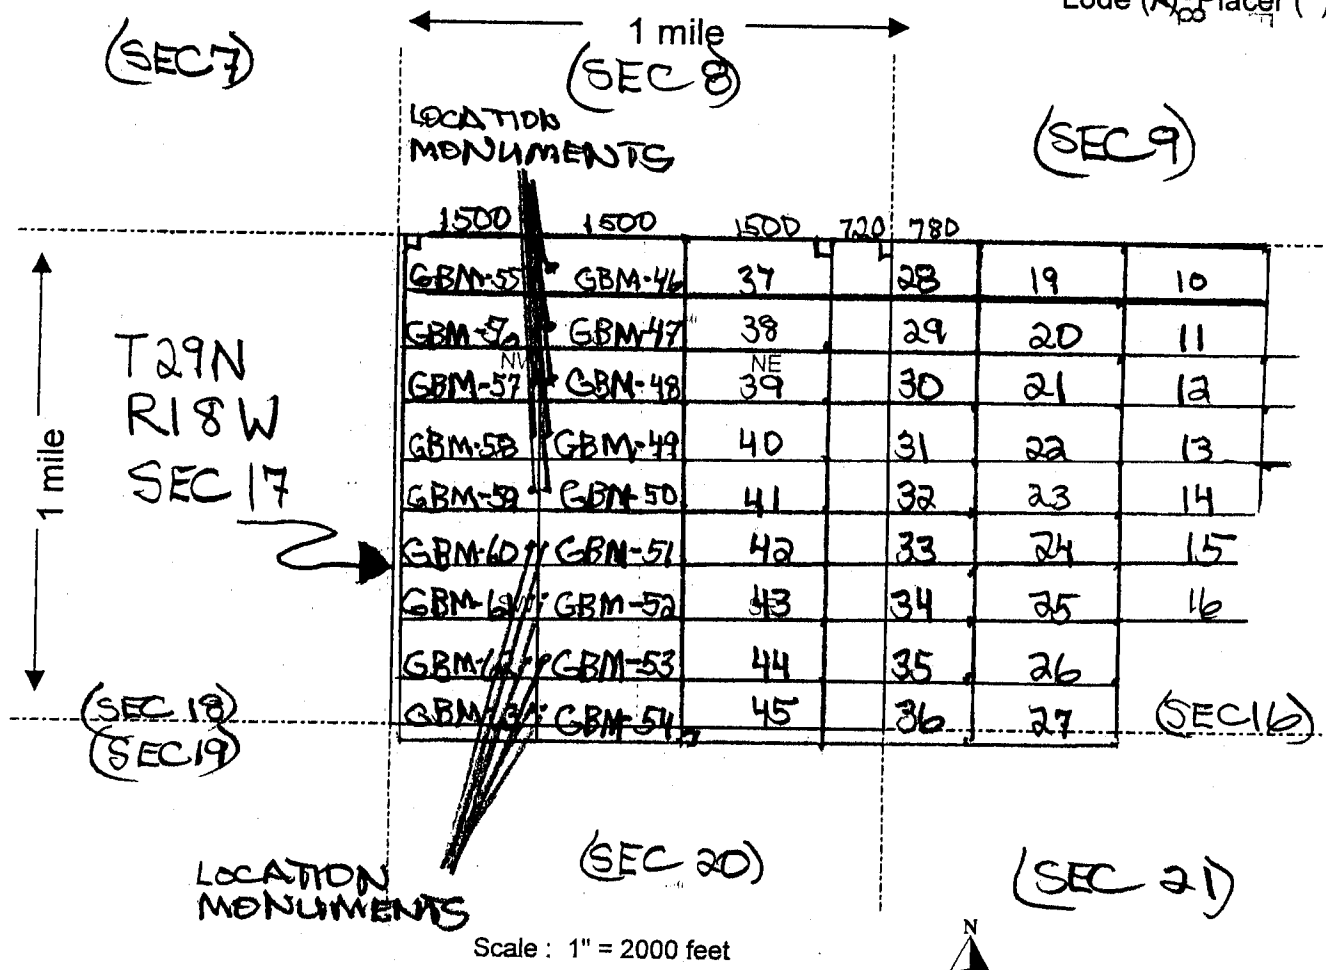 Lode (X) Placer ( )
1 mile
(SEC 7)
(SEC 8)
(SEC 9)
LOCATION
MONUMENTS
1500 1500 1500 720 780
GBM-55 GBM-46 37 28 19 10
GBM-56 GBM-47 38 29 20 11
NE
GBM-57 GBM-48 39 30 21 12
GBM-58 GBM-49 40 31 22 13
GBM-59 GBM-50 41 32 23 14
GBM-60 GBM-51 42 33 24 15
GBM-61 GBM-52 43 34 25 16
GBM-62 GBM-53 44 35 26
GBM-54 45 36 27
T29N
R18W
SEC 17
1 mile
(SEC 18)
(SEC 19)
(SEC 16)
(SEC 20)
(SEC 21)
LOCATION
MONUMENTS
Scale : 1" = 2000 feet
N